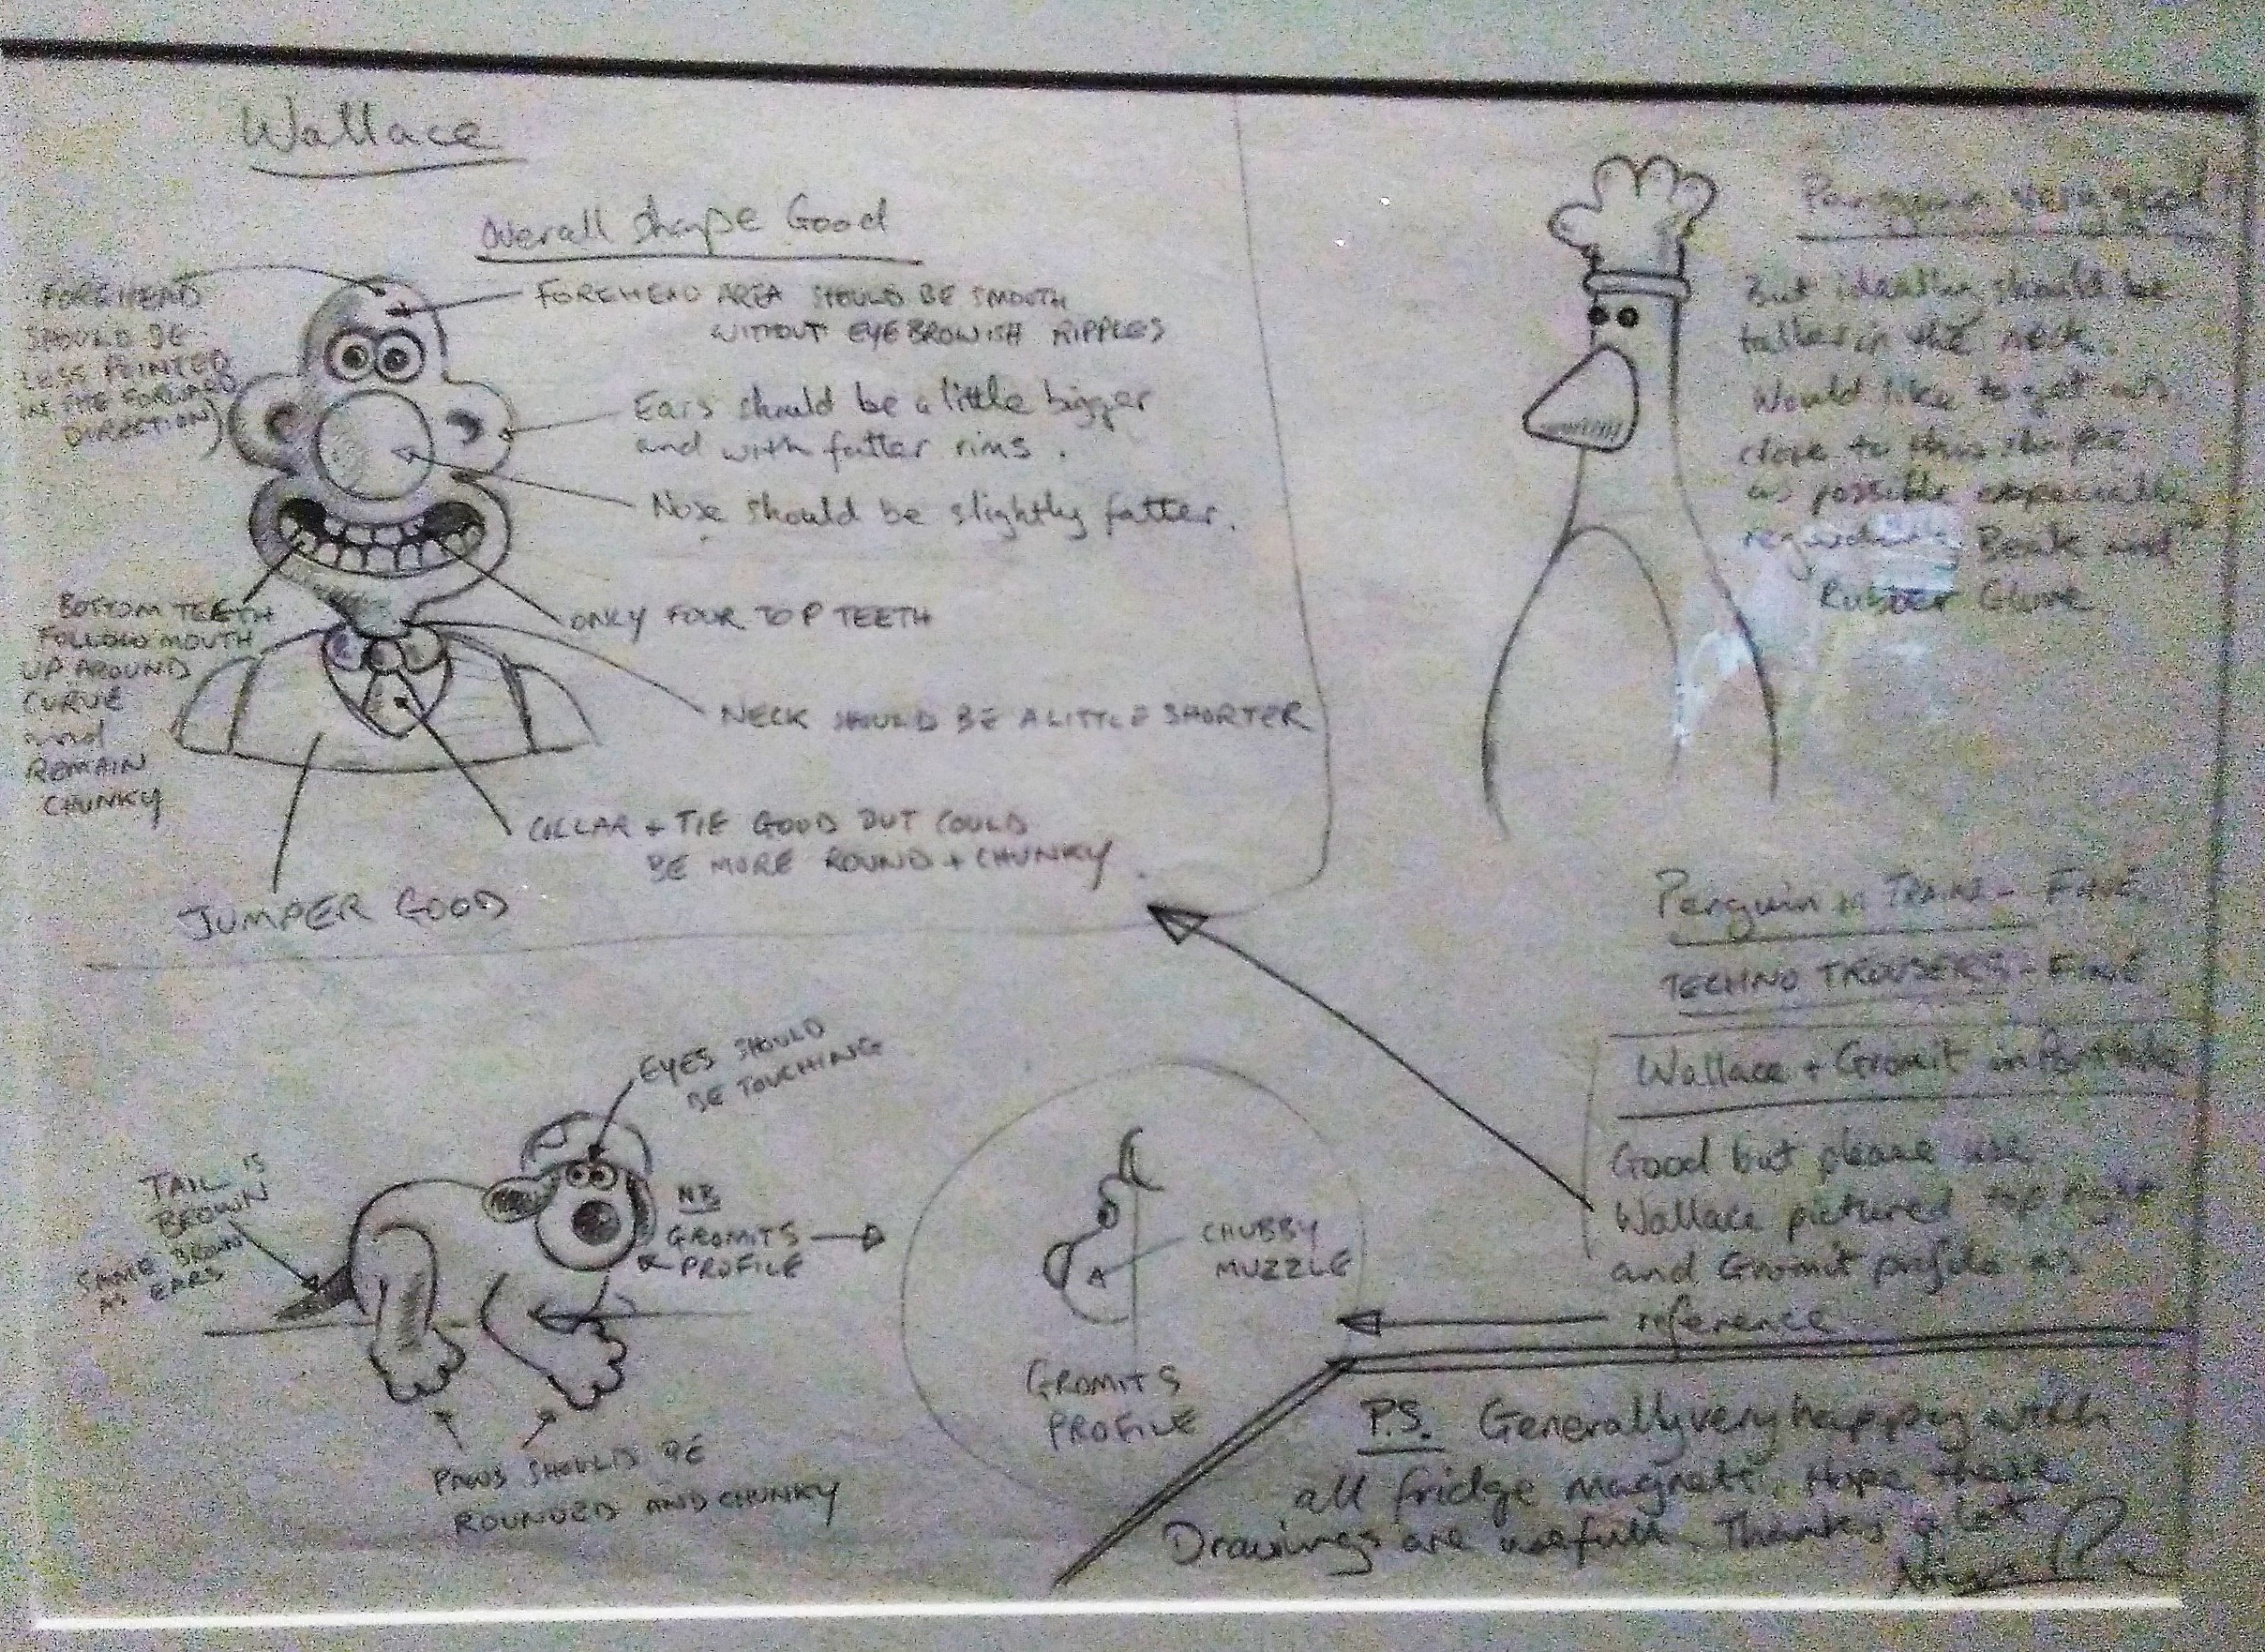 Wallace
Overall Shape Good
FOREHEAD
SHOULD BE
LESS POINTED
IN THE FORWARD
DIRECTION)
FOREHEAD AREA SHOULD BE SMOOTH
WITHOUT EYEBROWISH RIPPLES
Ears should be a little bigger
and with fatter rims.
Nose should be slightly fatter.
BOTTOM TEETH
FOLLOW MOUTH
UP AROUND
CURVE
and
REMAIN
CHUNKY
ONLY FOUR TOP TEETH
NECK SHOULD BE A LITTLE SHORTER
COLLAR + TIE GOOD BUT COULD
BE MORE ROUND + CHUNKY.
JUMPER GOOD
Penguin good
But ideally should be
taller in the neck.
Would like to get as
close to this shape
as possible especially
regarding Beak and
Rubber Glove
Penguin in TRAIN - FINE.
TECHNO TROUSERS - FINE
Wallace + Gromit in
Good but please use
Wallace pictured top
and Gromit profile as
reference
EYES SHOULD
BE TOUCHING
TAIL IS
BROWN
SAME BROWN
AS EARS
NB
GROMITS
PROFILE
CHUBBY
MUZZLE
GROMITS
PROFILE
PAWS SHOULD BE
ROUNDED AND CHUNKY
P.S. Generally very happy with
all fridge magnets. Hope these
Drawings are usefull. Thanks a lot